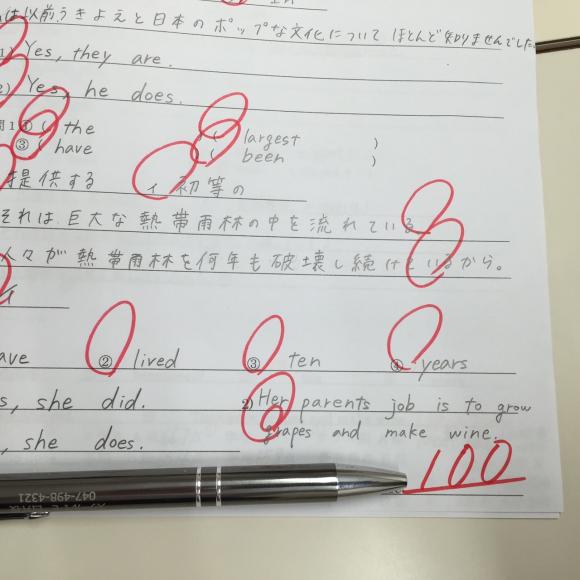 は以前うきよえと日本のポップな文化について ほとんど知りませんでした
1) Yes, they are.
2) Yes, he does.
問1 ① ( the ② ( largest )
③ ( have ④ ( been )
提供する イ 初等の
それは 巨大な 熱帯雨林の中を流れている
人々が 熱帯雨林を何年も破壊し続けているから。
イ
ave ② lived ③ ten ④ years
s, she did. 2) Her parents job is to grow
, she does. grapes and make wine.
100
047-498-4321